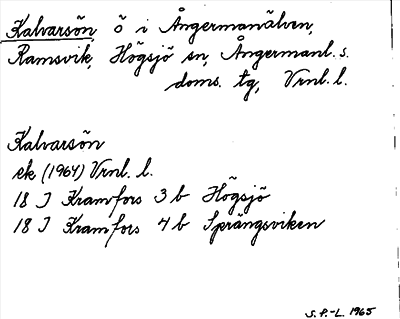 Kalvarsön, ö i Ångermanälven,
Ramsvik, Högsjö sn, Ångermanl. s.
doms. tg, Vrnl. l.
Kalvarsön
ek (1964) Vrnl. l.
18 I Kramfors 3 b Högsjö
18 I Kramfors 4 b Sprängsviken
S.P.-L. 1965